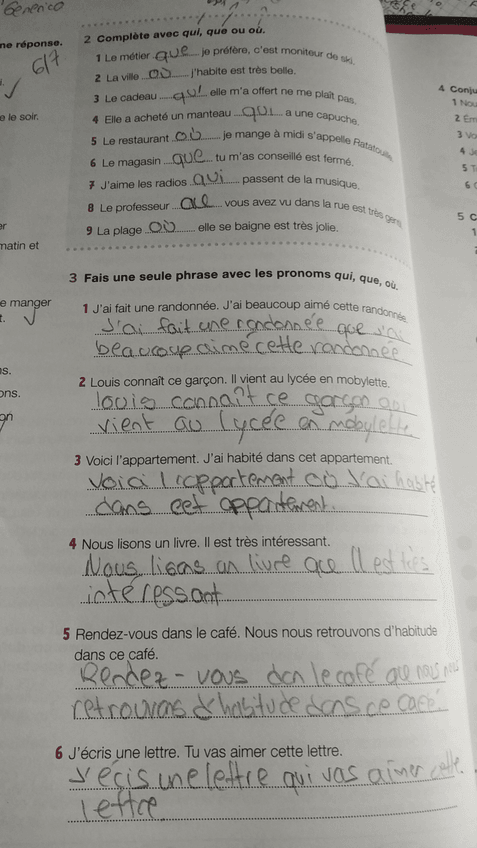 Generico
ne réponse.
6/7
e le soir.
er
matin et
e manger
t.
ns.
ons.
on
2 Complète avec qui, que ou où.
1 Le métier que je préfère, c'est moniteur de ski.
2 La ville où j'habite est très belle.
3 Le cadeau qui elle m'a offert ne me plaît pas.
4 Elle a acheté un manteau qui a une capuche.
5 Le restaurant où je mange à midi s'appelle Ratatouille.
6 Le magasin que tu m'as conseillé est fermé.
7 J'aime les radios qui passent de la musique.
8 Le professeur que vous avez vu dans la rue est très gentil.
9 La plage où elle se baigne est très jolie.
3 Fais une seule phrase avec les pronoms qui, que, où.
1 J'ai fait une randonnée. J'ai beaucoup aimé cette randonnée.
J'ai fait une randonnée que j'ai
beaucoup aimé cette randonnée
2 Louis connaît ce garçon. Il vient au lycée en mobylette.
louis connaît ce garçon qui
vient au lycée en mobylette
3 Voici l'appartement. J'ai habité dans cet appartement.
Voici l'appartement où J'ai habité
dans cet appartement.
4 Nous lisons un livre. Il est très intéressant.
Nous lisons un livre que Il est très
intéressant
5 Rendez-vous dans le café. Nous nous retrouvons d'habitude
dans ce café.
Rendez-vous dan le café que nous nous
retrouvons d'habitude dans ce café
6 J'écris une lettre. Tu vas aimer cette lettre.
J'écis une lettre qui vas aimer cette
lettre
4 Conju
1 Nou
2 Em
3 Vo
4 Je
5 T
6
5 C
1